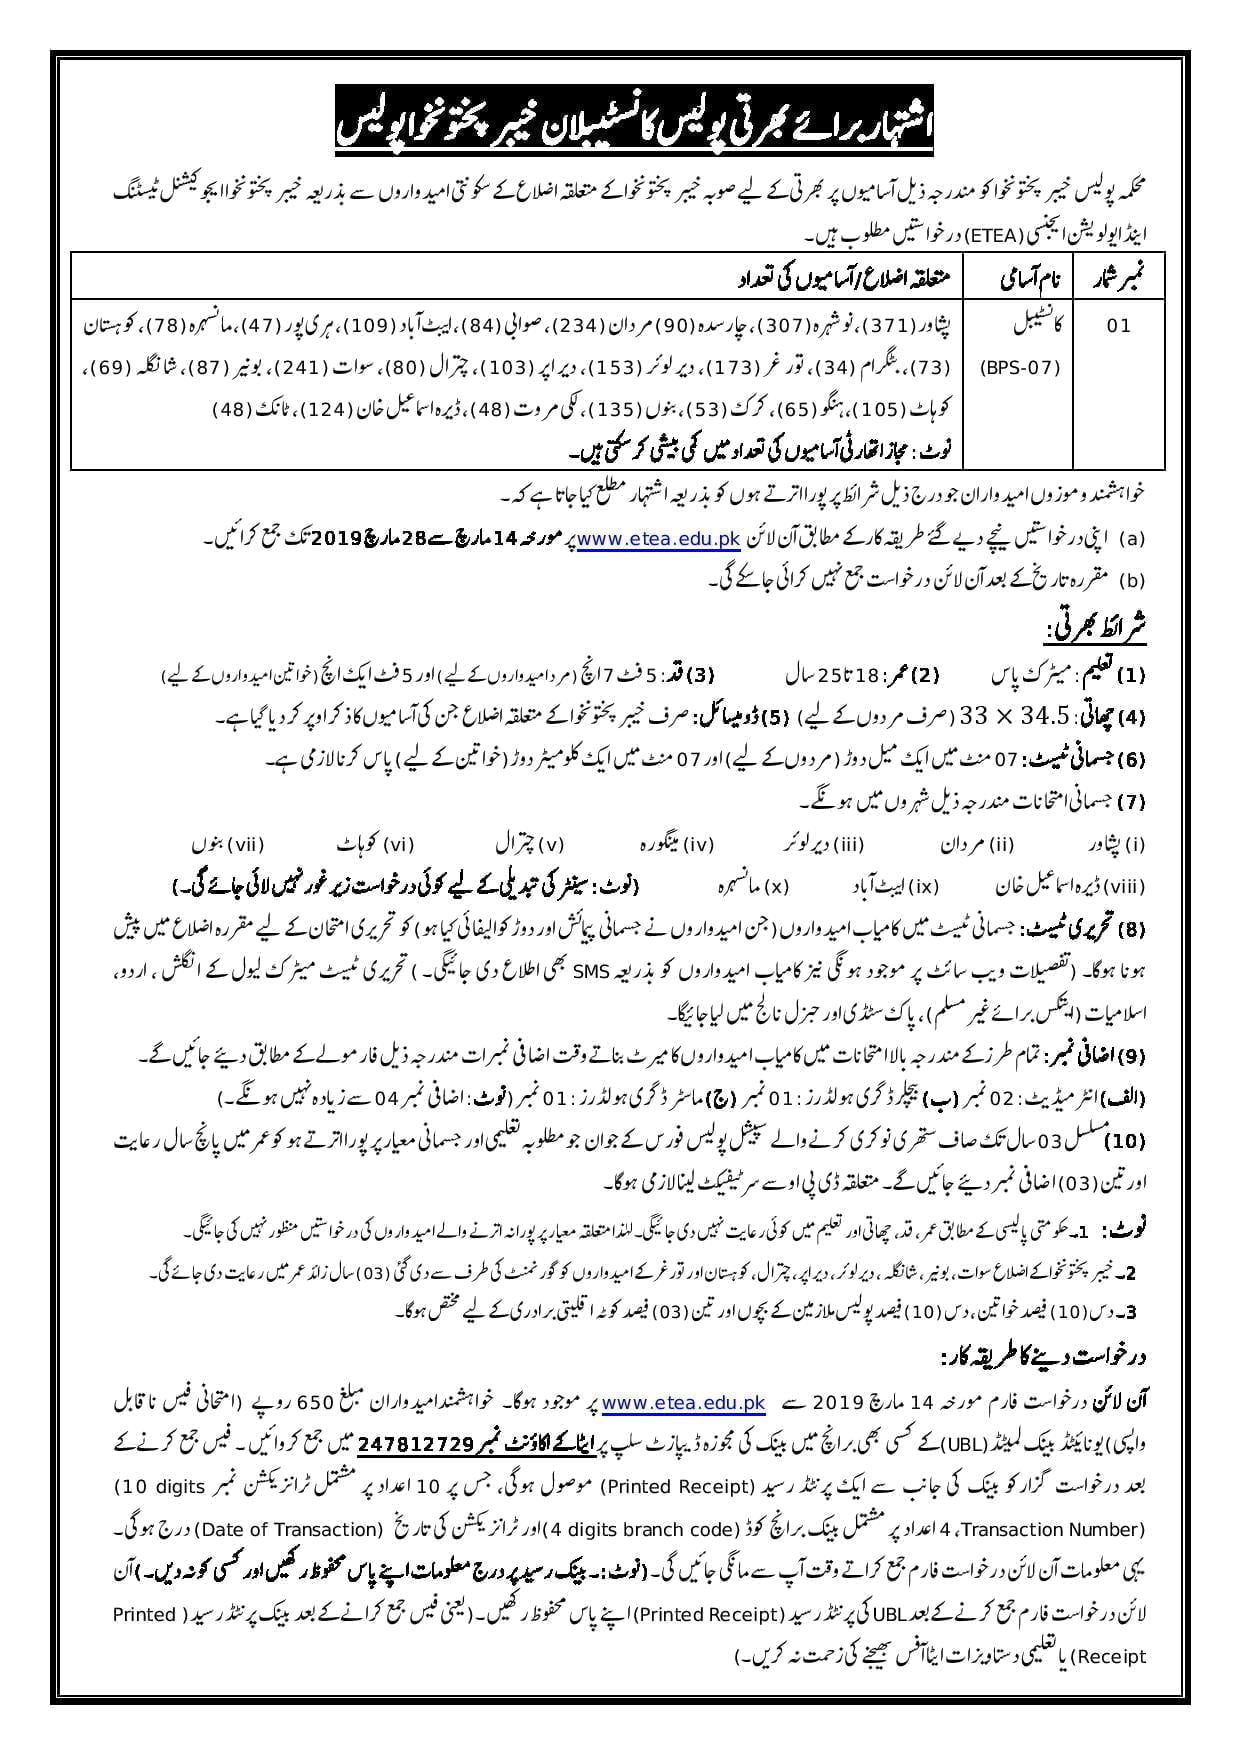 اشتہار برائے بھرتی پولیس کانسٹیبلان خیبر پختونخوا پولیس
محکمہ پولیس خیبر پختونخوا کو مندرجہ ذیل آسامیوں پر بھرتی کے لیے صوبہ خیبر پختونخوا کے متعلقہ اضلاع کے سکونتی امیدواروں سے بذریعہ خیبر پختونخوا ایجوکیشنل ٹیسٹنگ
اینڈ ایولویشن ایجنسی (ETEA) درخواستیں مطلوب ہیں۔
نمبر شمار نام آسامی متعلقہ اضلاع/آسامیوں کی تعداد
01 کانسٹیبل پشاور (371)، نوشہرہ (307)، چارسدہ (90) مردان (234)، صوابی (84)، ایبٹ آباد (109)، ہری پور (47)، مانسہرہ (78)، کوہستان
(BPS-07) (73)، بٹگرام (34)، تورغر (173)، دیر لوئر (153)، دیر اپر (103)، چترال (80)، سوات (241)، بونیر (87)، شانگلہ (69)،
کوہاٹ (105)، ہنگو (65)، کرک (53)، بنوں (135)، لکی مروت (48)، ڈیرہ اسماعیل خان (124)، ٹانک (48)
نوٹ: مجاز اتھارٹی آسامیوں کی تعداد میں کمی بیشی کر سکتی ہیں۔
خواہشمند و موزوں امیدواران جو درج ذیل شرائط پر پورا اترتے ہوں کو بذریعہ اشتہار مطلع کیا جاتا ہے کہ۔
(a) اپنی درخواستیں نیچے دیے گئے طریقہ کار کے مطابق آن لائن www.etea.edu.pk پر مورخہ 14 مارچ سے 28 مارچ 2019 تک جمع کرائیں۔
(b) مقررہ تاریخ کے بعد آن لائن درخواست جمع نہیں کرائی جا سکے گی۔
شرائط بھرتی:
(1) تعلیم: میٹرک پاس (2) عمر: 18 تا 25 سال (3) قد: 5 فٹ 7 انچ (مرد امیدواروں کے لیے) اور 5 فٹ ایک انچ (خواتین امیدواروں کے لیے)
(4) چھاتی: 33 × 34.5 (صرف مردوں کے لیے) (5) ڈومیسائل: صرف خیبر پختونخوا کے متعلقہ اضلاع جن کی آسامیوں کا ذکر اوپر کر دیا گیا ہے۔
(6) جسمانی ٹیسٹ: 07 منٹ میں ایک میل دوڑ (مردوں کے لیے) اور 07 منٹ میں ایک کلومیٹر دوڑ (خواتین کے لیے) پاس کرنا لازمی ہے۔
(7) جسمانی امتحانات مندرجہ ذیل شہروں میں ہونگے۔
(i) پشاور (ii) مردان (iii) دیر لوئر (iv) مینگورہ (v) چترال (vi) کوہاٹ (vii) بنوں
(viii) ڈیرہ اسماعیل خان (ix) ایبٹ آباد (x) مانسہرہ (نوٹ: سینٹر کی تبدیلی کے لیے کوئی درخواست زیر غور نہیں لائی جائے گی۔)
(8) تحریری ٹیسٹ: جسمانی ٹیسٹ میں کامیاب امیدواروں (جن امیدواروں نے جسمانی پیمائش اور دوڑ کوالیفائی کیا ہو) کو تحریری امتحان کے لیے مقررہ اضلاع میں پیش
ہونا ہوگا۔ (تفصیلات ویب سائٹ پر موجود ہونگی نیز کامیاب امیدواروں کو بذریعہ SMS بھی اطلاع دی جائیگی۔) تحریری ٹیسٹ میٹرک لیول کے انگلش، اردو،
اسلامیات (ایتھکس برائے غیر مسلم)، پاک سٹڈی اور جنرل نالج میں لیا جائیگا۔
(9) اضافی نمبر: تمام طرز کے مندرجہ بالا امتحانات میں کامیاب امیدواروں کا میرٹ بناتے وقت اضافی نمبرات مندرجہ ذیل فارمولے کے مطابق دیئے جائیں گے۔
(الف) انٹرمیڈیٹ: 02 نمبر (ب) بیچلر ڈگری ہولڈرز: 01 نمبر (ج) ماسٹر ڈگری ہولڈرز: 01 نمبر (نوٹ: اضافی نمبر 04 سے زیادہ نہیں ہونگے۔)
(10) مسلسل 03 سال تک صاف ستھری نوکری کرنے والے سپیشل پولیس فورس کے جوان جو مطلوبہ تعلیمی اور جسمانی معیار پر پورا اترتے ہو کو عمر میں پانچ سال رعایت
اور تین (03) اضافی نمبر دیئے جائیں گے۔ متعلقہ ڈی پی او سے سرٹیفیکٹ لینا لازمی ہوگا۔
نوٹ: 1۔ حکومتی پالیسی کے مطابق عمر، قد، چھاتی اور تعلیم میں کوئی رعایت نہیں دی جائیگی۔ لہٰذا متعلقہ معیار پر پورا نہ اترنے والے امیدواروں کی درخواستیں منظور نہیں کی جائیگی۔
2۔ خیبر پختونخوا کے اضلاع سوات، بونیر، شانگلہ، دیر لوئر، دیر اپر، چترال، کوہستان اور تورغر کے امیدواروں کو گورنمنٹ کی طرف سے دی گئی (03) سال زائد عمر میں رعایت دی جائے گی۔
3۔ دس (10) فیصد خواتین، دس (10) فیصد پولیس ملازمین کے بچوں اور تین (03) فیصد کوٹہ اقلیتی برادری کے لیے مختص ہوگا۔
درخواست دینے کا طریقہ کار:
آن لائن درخواست فارم مورخہ 14 مارچ 2019 سے www.etea.edu.pk پر موجود ہوگا۔ خواہشمند امیدواران مبلغ 650 روپے (امتحانی فیس ناقابل
واپسی) یونائیٹڈ بینک لمیٹڈ (UBL) کے کسی بھی برانچ میں بینک کی مجوزہ ڈیپازٹ سلپ پر ایٹا کے اکاؤنٹ نمبر 247812729 میں جمع کروائیں۔ فیس جمع کرنے کے
بعد درخواست گزار کو بینک کی جانب سے ایک پرنٹڈ رسید (Printed Receipt) موصول ہوگی، جس پر 10 اعداد پر مشتمل ٹرانزیکشن نمبر (10 digits
Transaction Number)، 4 اعداد پر مشتمل بینک برانچ کوڈ (4 digits branch code) اور ٹرانزیکشن کی تاریخ (Date of Transaction) درج ہوگی۔
یہی معلومات آن لائن درخواست فارم جمع کراتے وقت آپ سے مانگی جائیں گی۔ (نوٹ:۔ بینک رسید پر درج معلومات اپنے پاس محفوظ رکھیں اور کسی کو نہ دیں۔) آن
لائن درخواست فارم جمع کرنے کے بعد UBL کی پرنٹڈ رسید (Printed Receipt) اپنے پاس محفوظ رکھیں۔ (یعنی فیس جمع کرانے کے بعد بینک پرنٹڈ رسید (Printed
Receipt) یا تعلیمی دستاویزات ایٹا آفس بھیجنے کی زحمت نہ کریں۔)